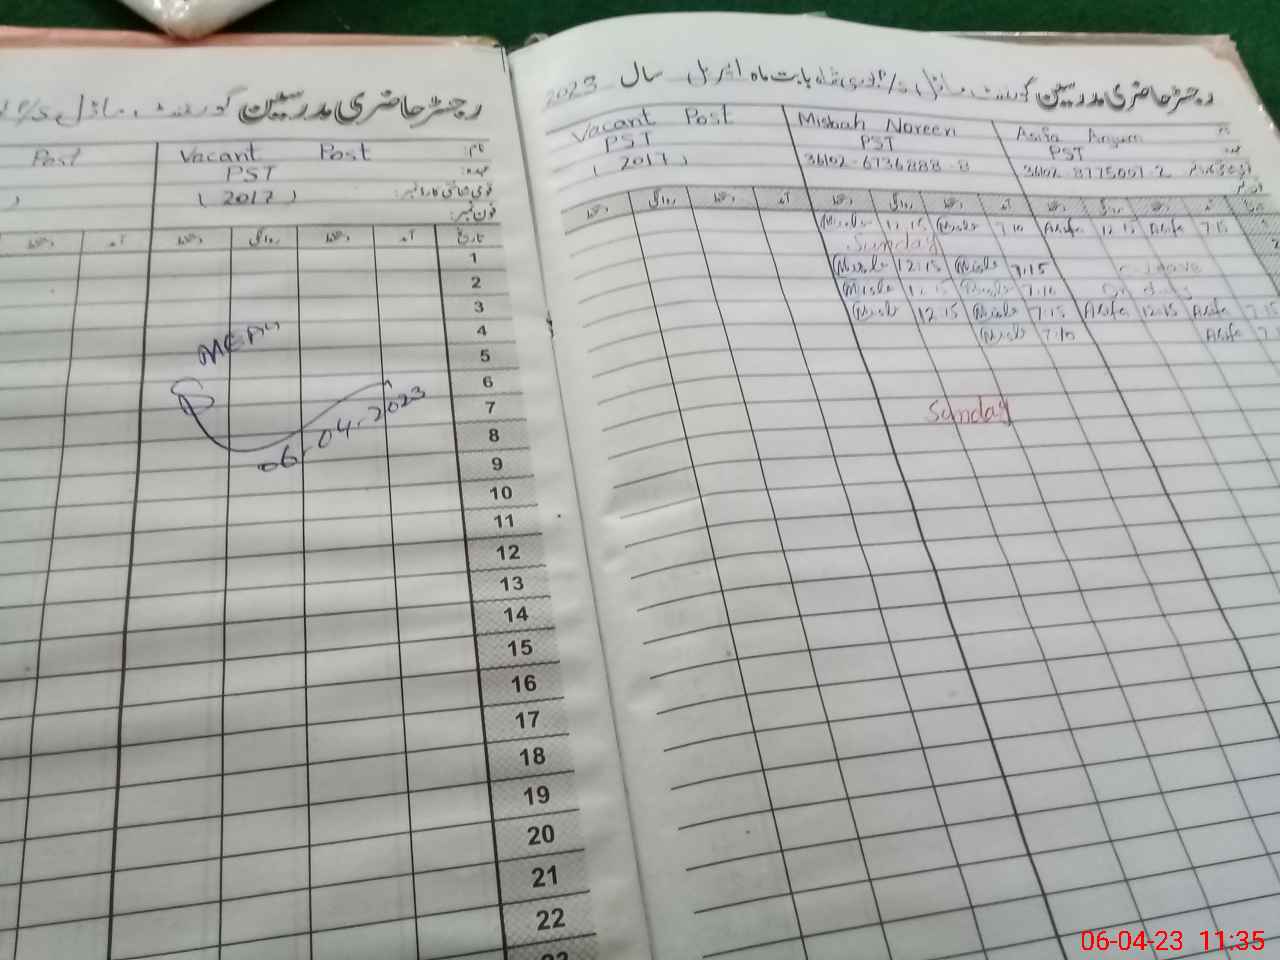 رجسٹر حاضری مدرسین گورنمنٹ ماڈل
Post
Vacant Post
نام:
PST
عہدہ:
( 2017 )
قومی شناختی کارڈ نمبر:
فون نمبر:
آمد دستخط روانگی دستخط آمد تاریخ
1
2
3
4
5
6
7
8
9
10
11
12
13
14
15
16
17
18
19
20
21
22
23
MEA
06.04.2023
رجسٹر حاضری مدرسین گورنمنٹ ماڈل بابت ماہ اپریل سال 2023
Vacant Post Misbah Noreen Asifa Anjum نام
PST PST PST عہدہ
( 2017 ) 36102-6736888-8 36102-8775001-2
دستخط روانگی دستخط آمد دستخط روانگی دستخط آمد دستخط روانگی دستخط آمد
Misb 12:15 Misb 7:10 Asifa 12:15 Asifa 7:15
Sunday
Misb 12:15 Misb 7:15 leave
Misb Misb 7:10
Misb 12:15 Misb 7:15 Asifa 12:15 Asifa 7:15
Misb 7:10 Asifa
Sunday
06-04-23 11:35